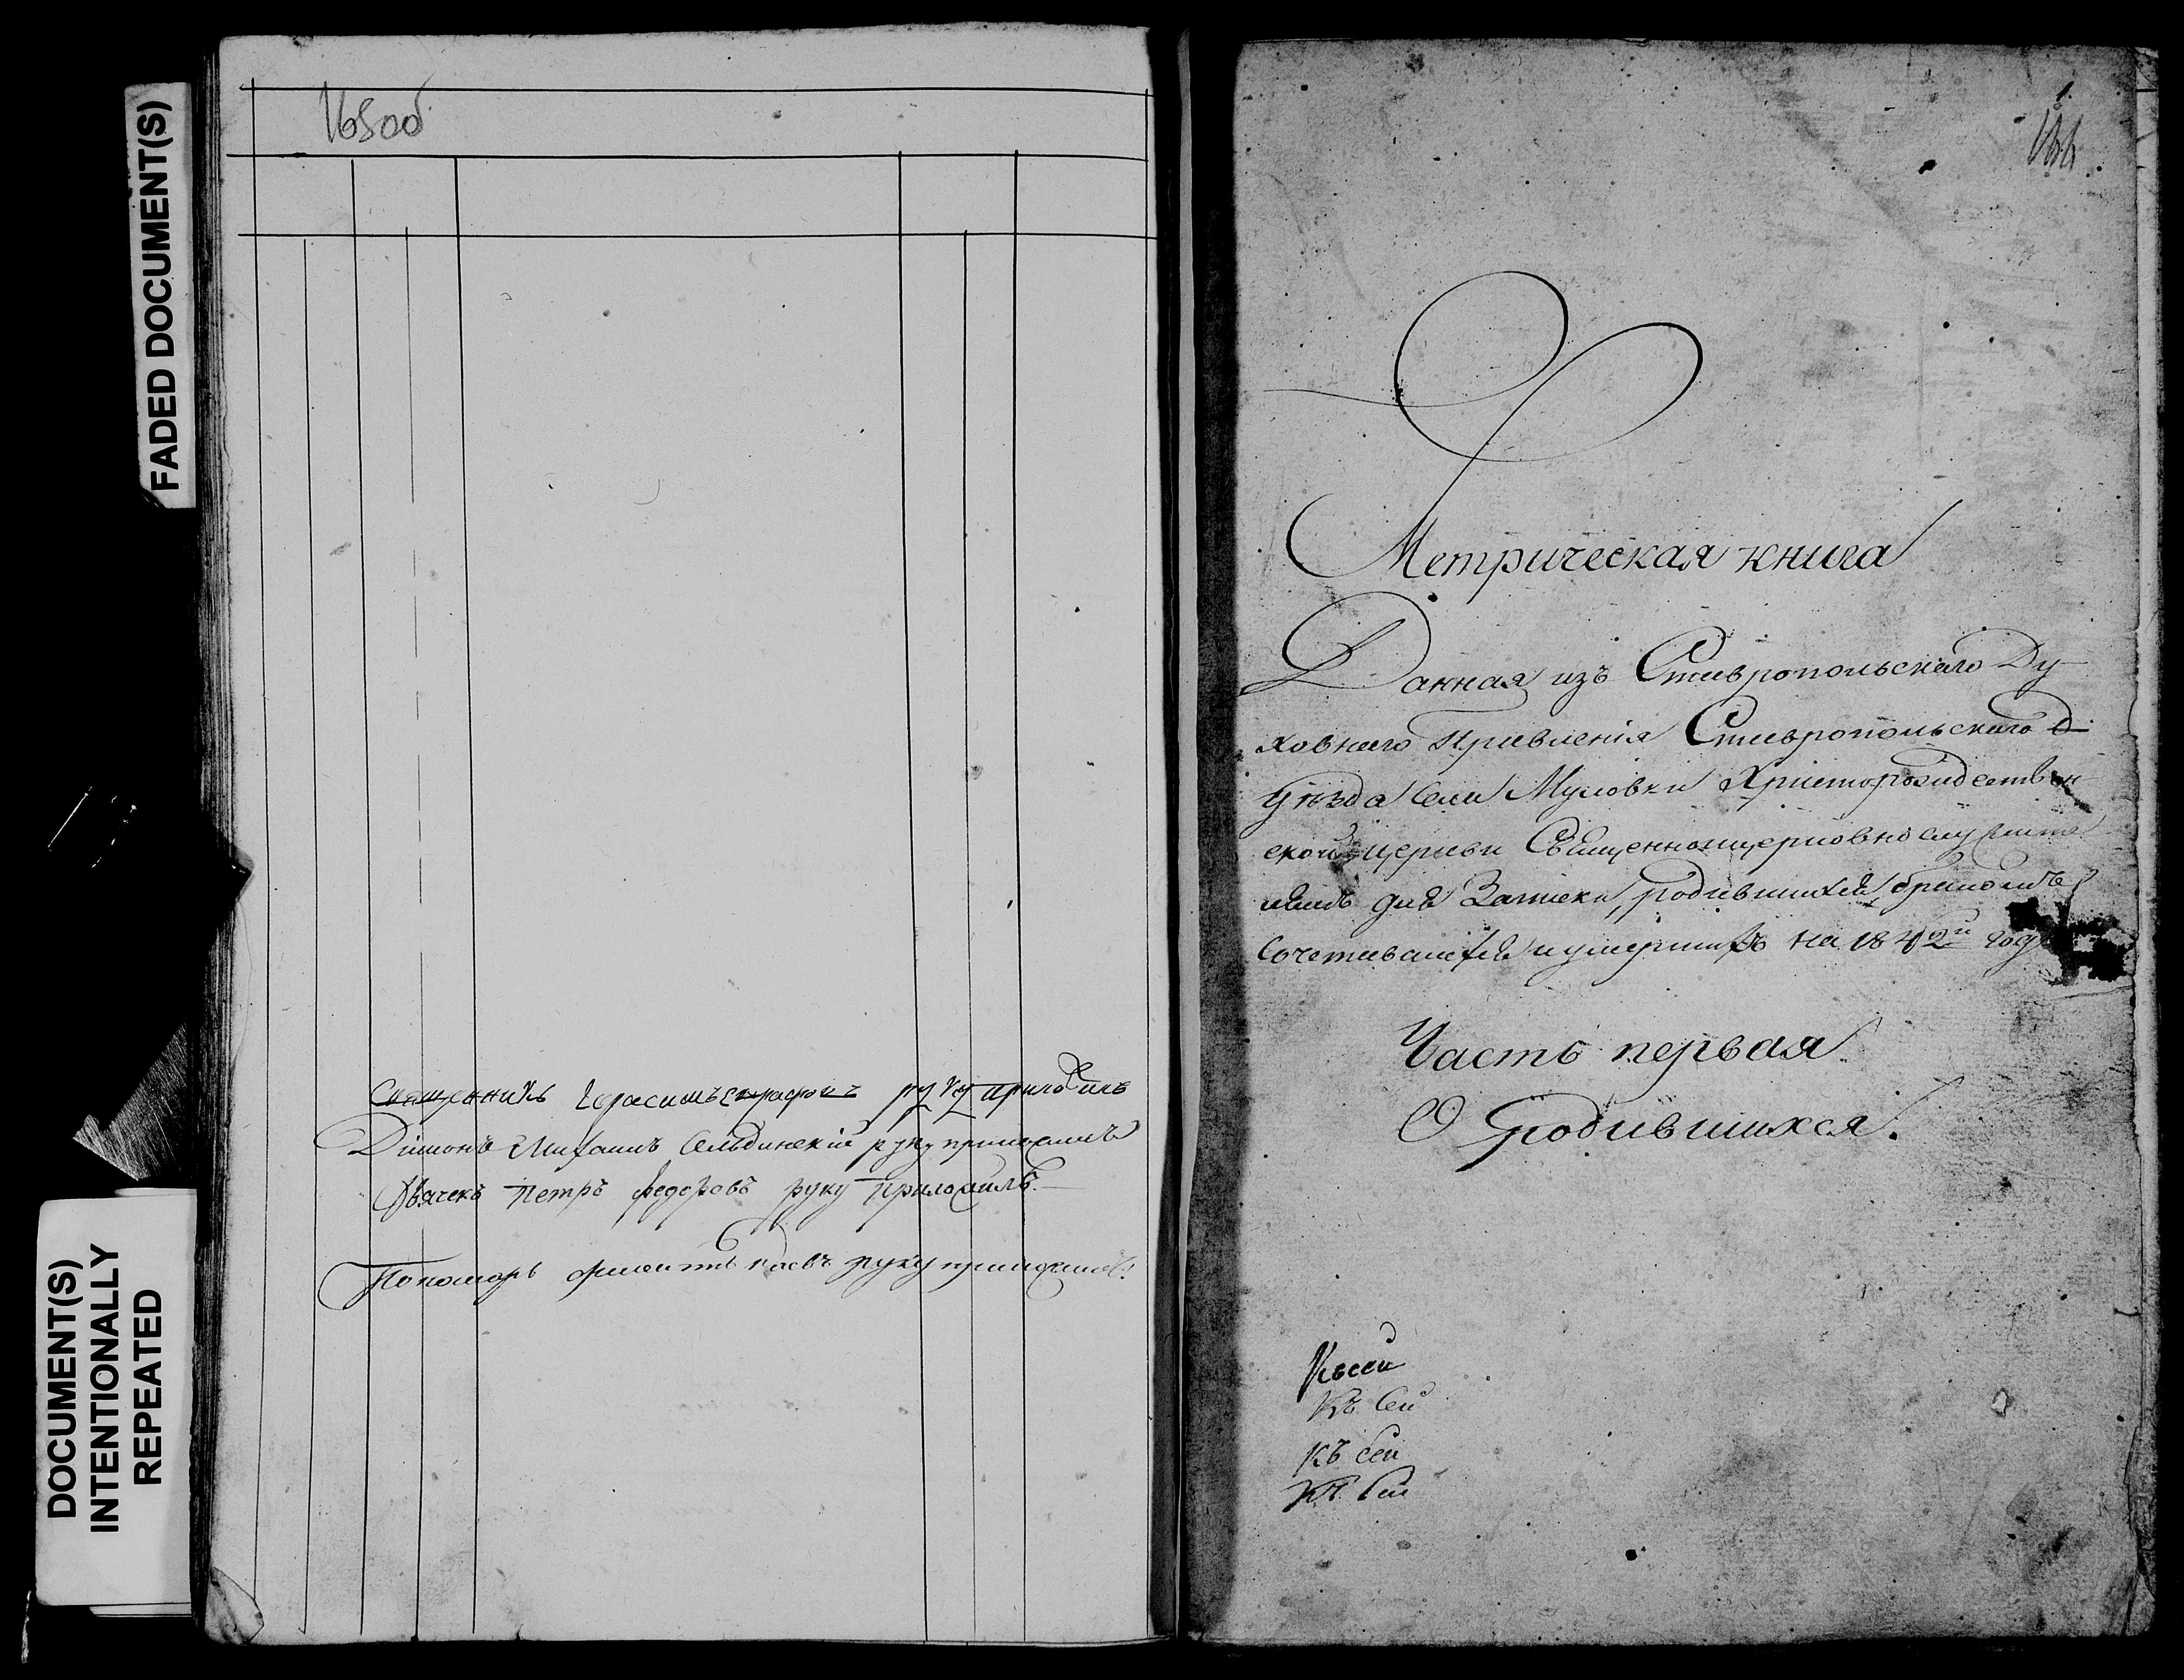 FADED DOCUMENT(S)
DOCUMENT(S)
INTENTIONALLY
REPEATED
165об.
Священникъ Герасимъ руку приложилъ
Діаконъ Михаилъ руку приложилъ
Дьячекъ Петръ Федоровъ руку приложилъ.
Пономарь руку приложилъ
1.
166
Метрическая книга
Данная изъ Ставропольскаго Ду-
ховнаго Правленія Ставропольскаго
уѣзда села Мусовки Христорождествен
ской церкви Священноцерковнослужите
лямъ для Записки, родившихся, бракомъ
сочетавшихся и умершихъ на 1842й годъ
Часть первая
О родившихся.
Къ сей
Къ Сей
Къ сей
Къ Сей